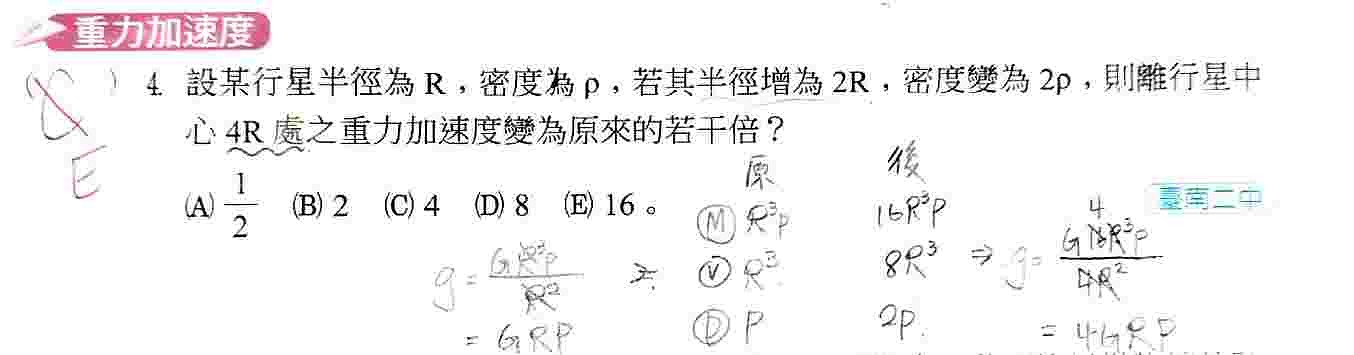 重力加速度
4. 設某行星半徑為 R，密度為 ρ，若其半徑增為 2R，密度變為 2ρ，則離行星中
心 4R 處之重力加速度變為原來的若干倍？
E
(A) 1/2 (B) 2 (C) 4 (D) 8 (E) 16。
臺南二中
原 後
Ⓜ R³ρ 16R³ρ
Ⓥ R³ 8R³
Ⓓ ρ 2ρ.
g = GR³ρ/R²
= GRρ
⇒ g = G16R³ρ/4R²
4
= 4GRρ